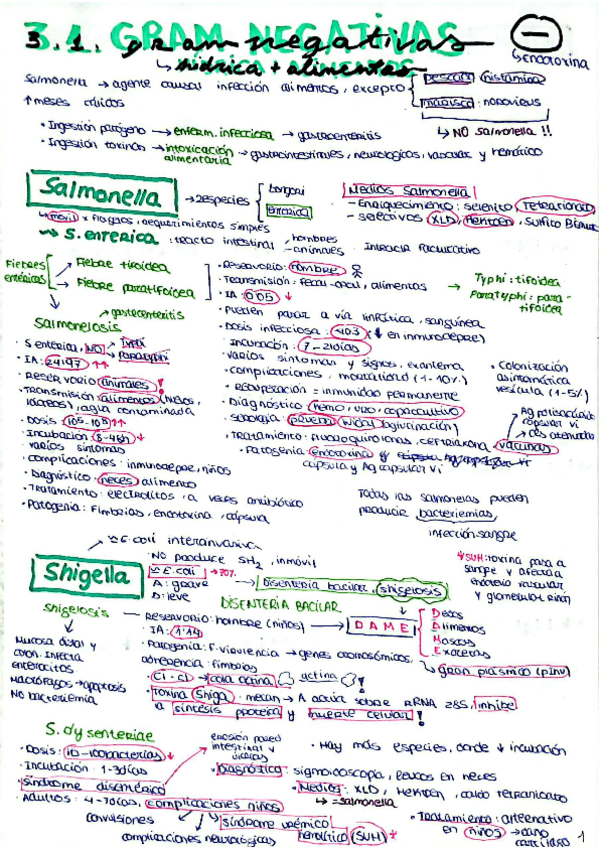 3.1. GRAM NEGATIVAS
gram negativas
−
Endotoxina
hídrica + alimentos
Salmonella → agente causal infección alimentos, excepto
pescado: histamina
marisco: norovirus
↑ meses cálidos
↳ NO salmonella !!
• Ingestión patógeno → enferm. infecciosa → gastroenteritis
• Ingestión toxinas → intoxicación alimentaria → gastrointestinales, neurológicos, vascular y hemático
Salmonella
→ 2 especies
bongori
enterica
Medios Salmonella
- Enriquecimiento: selenito, tetrationato
- selectivos XLD, Hektoen, Sulfito Bismuto
↳ móvil x flagelos, requerimientos simples
S. enterica: tracto intestinal
hombres
animales
Intraclr Facultativo
Fiebres entéricas
Fiebre tifoidea
Fiebre paratifoidea
• Reservorio: hombre
• Transmisión: fecal-oral, alimentos
→ Typhi: tifoidea
Paratyphi: para-tifoidea
• IA: 0'05 ↓
• Pueden pasar a vía linfática, sanguínea
• Dosis infecciosa: <10^3 (↓ en inmunodepre)
• Incubación: 7-21 días
• Varios síntomas y signos, exantema
• complicaciones, mortalidad (1-10%)
• Recuperación = inmunidad permanente
• Diagnóstico: hemo, uro, coprocultivo
• Serología: prueba Widal (aglutinación)
• Tratamiento: fluoroquinolonas, ceftriaxona, vacunas
• Patogenia: endotoxina
cápsula y Ag capsular Vi
• Colonización asintomática vesícula (1-5%)
Ag polisacárido capsular Vi
cels atenuadas
→ gastroenteritis
Salmonelosis
• S enterica, NO
Typhi
Paratyphi
• IA: 24'97 ↑↑
• Reservorio animales !
• Transmisión: alimentos (huevos, lácteos), agua contaminada
• Dosis: 10^5-10^8 ↑↑
• Incubación: 8-48h ↓
• varios síntomas
• Complicaciones: inmunodepre, niños
• Diagnóstico: heces, alimento
• Tratamiento: electrolitos, a veces antibiótico
• Patogenia: Fimbrias, endotoxina, cápsula
Todas las salmonelas pueden producir bacteriemias,
↓
infección sangre
≃ E. coli interinvasiva
Shigella
• NO produce SH2, inmóvil
≃ E. coli → 70%
A: grave
D: leve
→ Disentería bacilar, shigelosis
* SUH: toxina pasa a sangre y afecta a endotelio vascular y glomerular riñón
DISENTERÍA BACILAR
shigelosis
- Reservorio: hombre (niños) → DAME
Dedos
Alimentos
Moscas
Excretas
• IA: 1'14
• Patogenia: F. virulencia → genes cromosómicos
↳ gran plásmido (pInv)
adherencia: fimbrias
• Cl-Cl → cola actina
actina !
• Toxina Shiga: mecan → A actúa sobre rRNA 28S, inhibe la síntesis proteica y muerte celular !
Mucosa distal y colon. Infecta enterocitos
Macrófagos → apoptosis
No bacteriemia
S. dysenteriae
• Dosis: 10-100 bacterias ↓
• Incubación: 1-3 días
síndrome disentérico
• Adultos: 4-7 días, complicaciones niños
convulsiones
complicaciones neurológicas
síndrome urémico hemolítico (SUH) *
erosión pared intestinal y úlceras
• Hay más especies, donde ↓ incubación
• Diagnóstico: sigmoidoscopia, leucos en heces
• Medios: XLD, Hektoen, caldo tetrationato
↳ = salmonella
• Tratamiento: alternativo en niños → daño cartílago
1